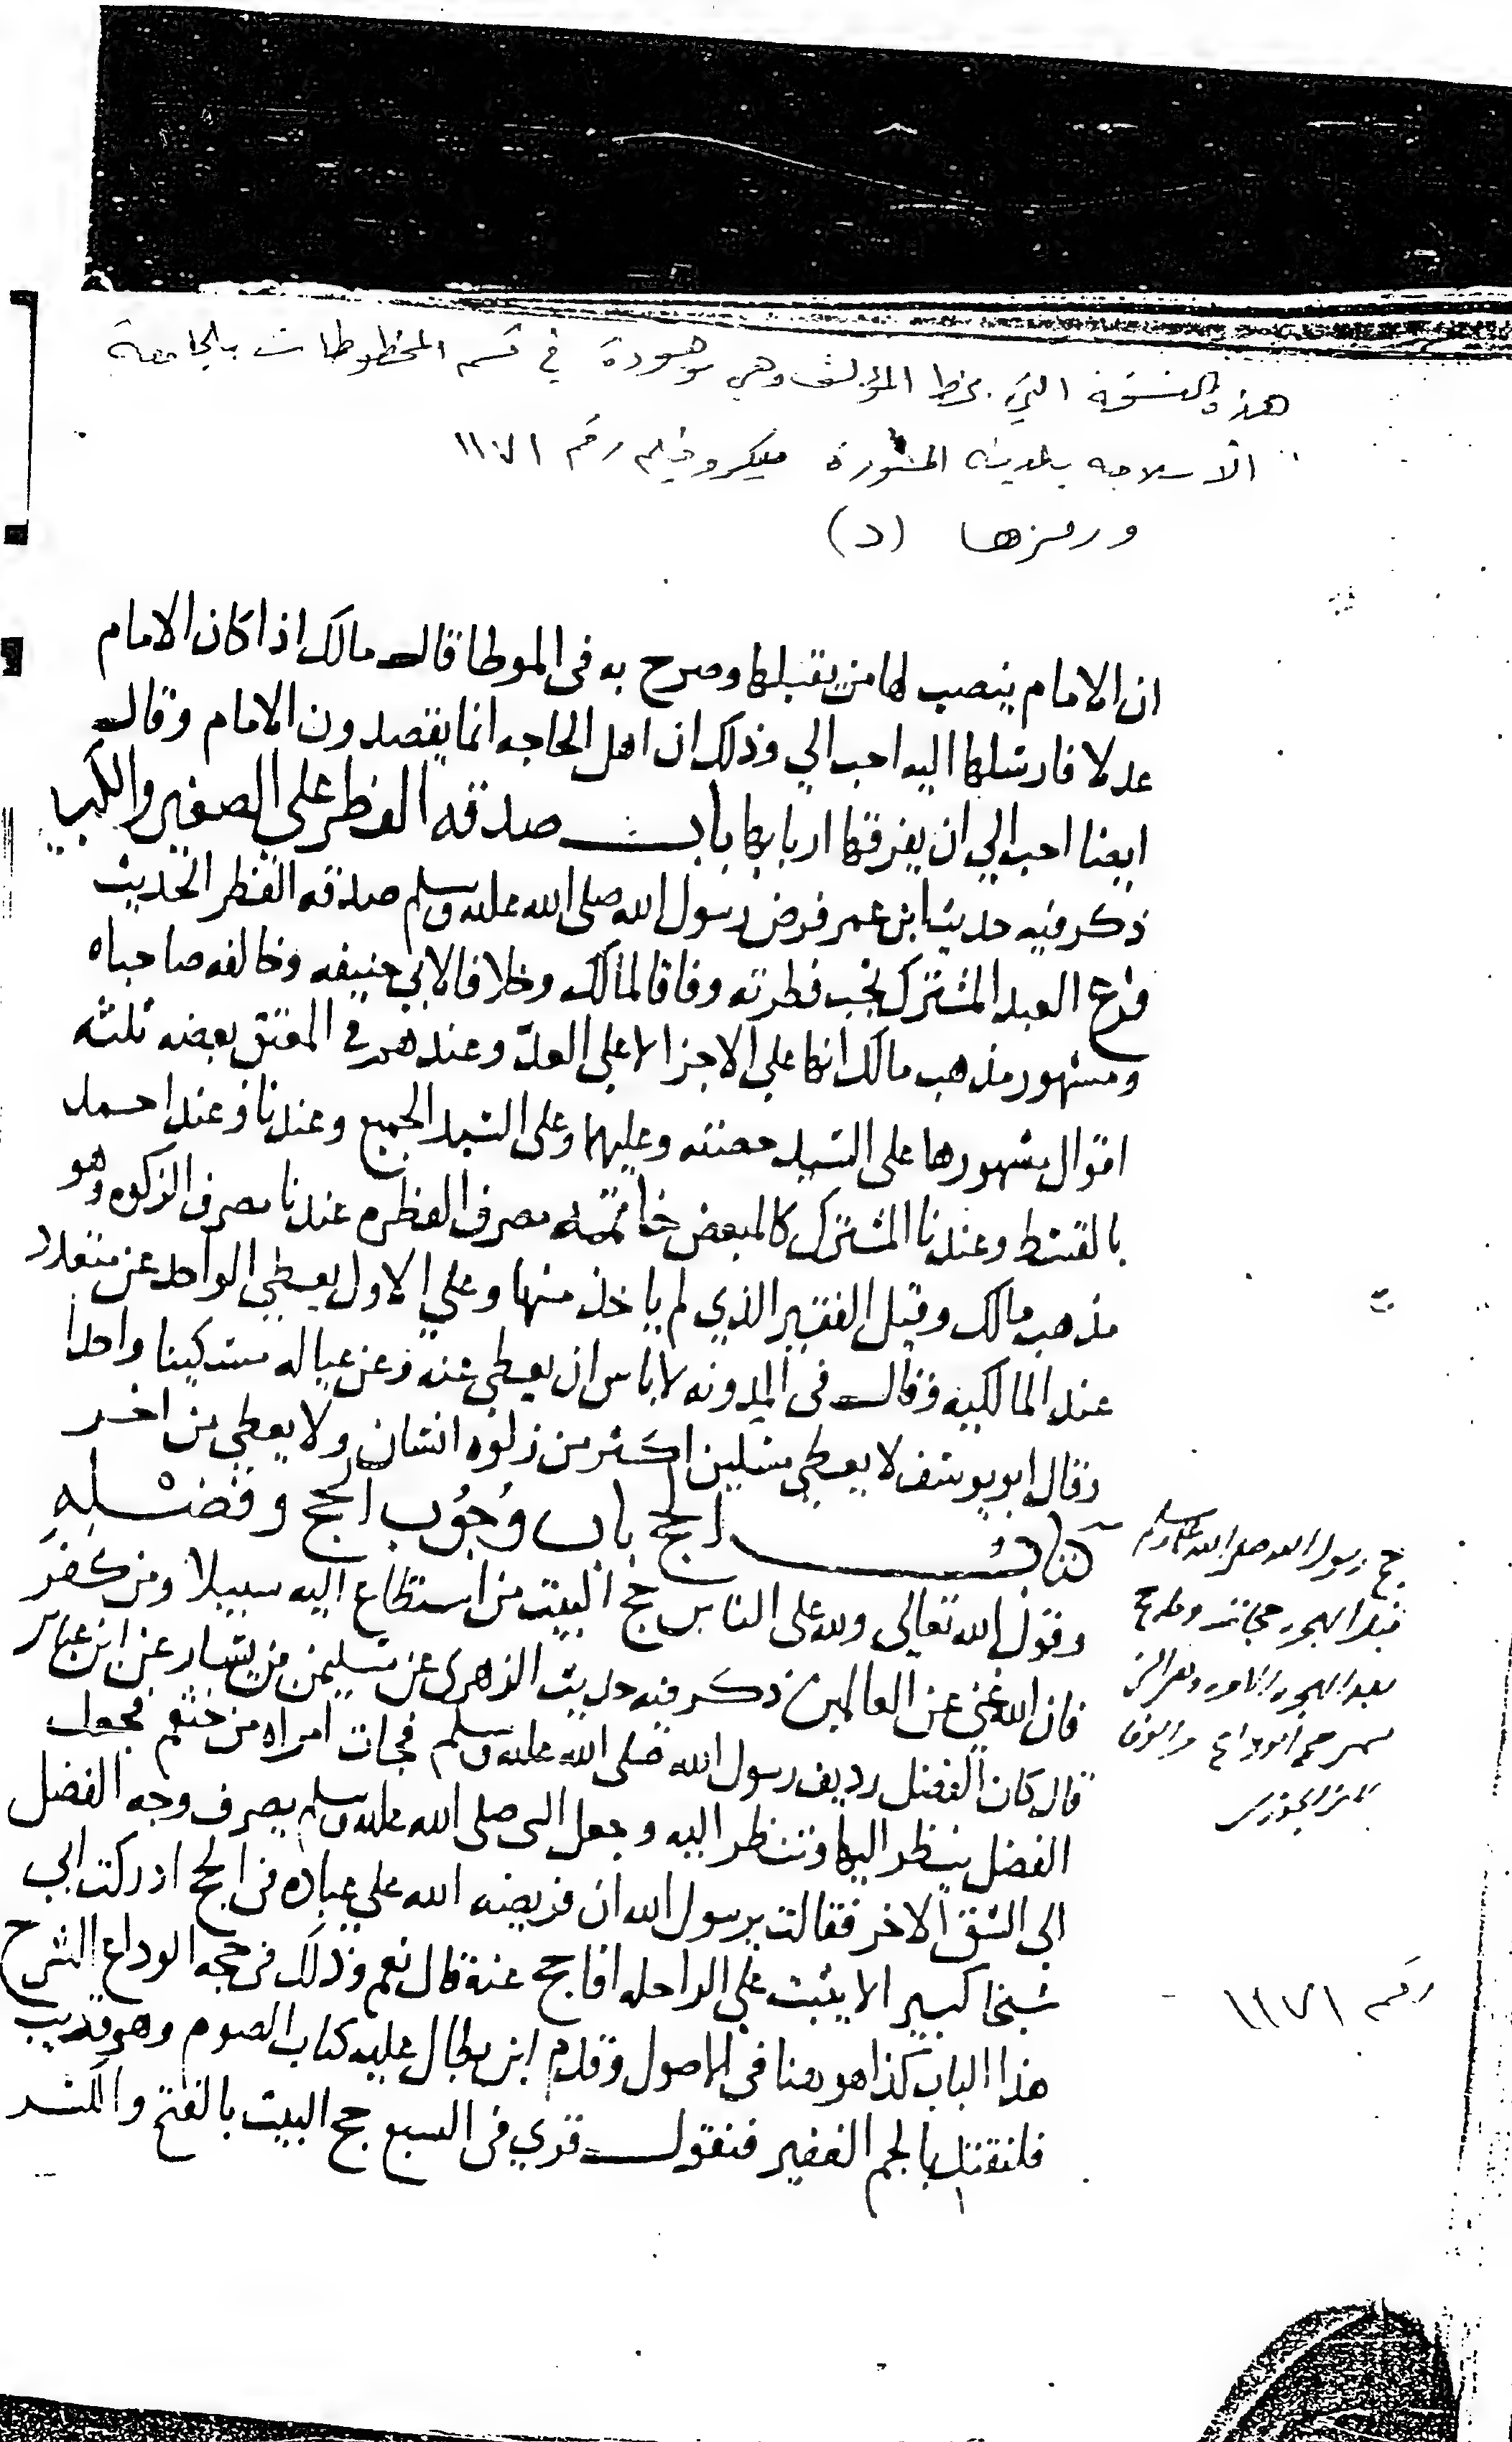 هذه النسخة التي بخط المؤلف وهي موجودة في قسم المخطوطات بالجامعة
الاسلاميه بالمدينه المنورة ميكروفيلم رقم
ورمزها (د)
ان الامام ينصب لها من يقبلها وصرح به فى الموطا قال مالك اذا كان الامام
عدلا فارسلها اليه احب الي وذلك ان اهل الحاجه انما يقصدون الامام وقال
ايضا احب الي ان يفرقها اربابها باب صدقه الفطر على الصغير والكبير
ذكر فيه حديث ابن عمر فرض رسول الله صلى الله عليه وسلم صدقه الفطر الحديث
فرع العبد المشترك تجب فطرته وفاقا لمالك وخلافا لابي حنيفه وخالفه صاحباه
ومشهور مذهب مالك انها على الاجزا لا على العدد وعندهم في المعتق بعضه ثلثه
اقوال مشهورها على السيد حصته وعليهما وعلى السيد الجميع وعندنا وعند احمد
بالقسط وعندنا المشترك كالمبعض خاتمه مصرف الفطره عندنا مصرف الزكوه وهو
مذهب مالك وقيل الفقير الذي لم ياخذ منها وعلي الاول يعطي الواحد عن متعدد
عند المالكيه وقال فى المدونه لا باس ان يعطي عنه وعن عياله مسكينا واحدا
وقال ابو يوسف لا يعطي مسكين اكثر من زكوه انسان ولا يعطي من اخر
كتاب الحج باب وُجُوب الحج وفضله
وقول الله تعالى ولله على الناس حج البيت من استطاع اليه سبيلا ومن كفر
فان الله غني عن العالمين ذكر فيه حديث الزهرى عن سليمن بن يسار عن ابن عباس
قال كان الفضل رديف رسول الله صلى الله عليه وسلم فجات امراه من خثعم فجعل
الفضل ينظر اليها وتنظر اليه وجعل النبى صلى الله عليه وسلم يصرف وجه الفضل
الى الشق الاخر فقالت يرسول الله ان فريضه الله علي عباده فى الحج ادركت ابي
شيخا كبيرا لا يثبت علي الراحله افاحج عنه قال نعم وذلك فى حجه الوداع الشرح
هذا الباب كذا هو هنا فى الاصول وقدم ابن بطال عليه كتاب الصوم وهو قريب
فلنقتد بالجم الغفير فنقول قري فى السبع حج البيت بالفتح والكسر
حج رسول الله صلى الله عليه وسلم
قبل الهجره
بعد الهجره
حجه الوداع
لابن الجوزى
رقم